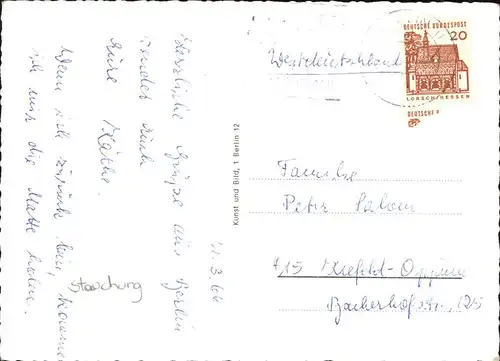 11.3.66
Herzliche Grüße aus Berlin
sendet Euch
Eure Käthe.
Wenn ich zurück bin, komme
ich mir die Matte holen.
Stauchung
Kunst und Bild, 1 Berlin 12
Westdeutschland
DEUTSCHE BUNDESPOST
20
LORSCH/HESSEN
DEUTSCHE
Familie
Peter
415 Krefeld-Oppum
Backerhofstr. 125